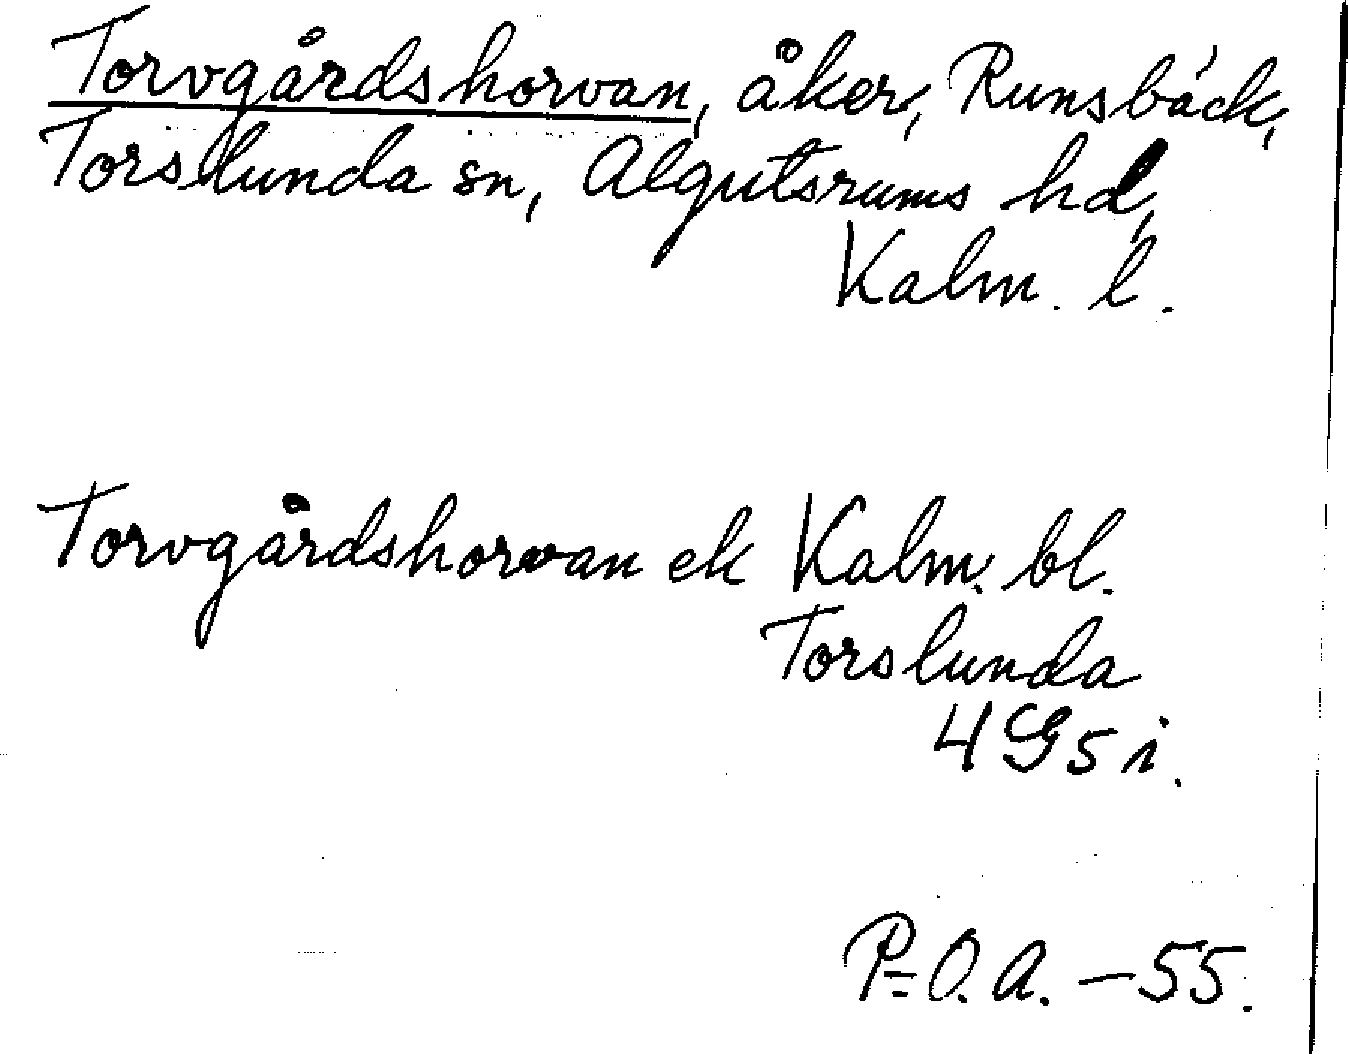 Torvgårdshorvan, åker, Runsbäck,
Torslunda sn, Algutsrums hd,
Kalm. l.
Torvgårdshorvan ek Kalm. bl.
Torslunda
4G5i.
P-O.A. -55.